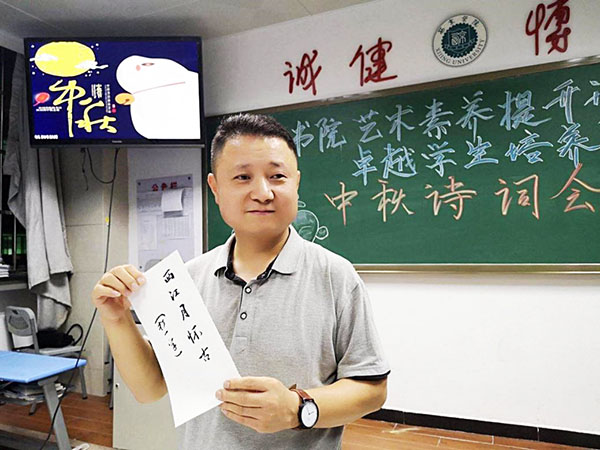 情
中秋
诚 健 博
XIJING UNIVERSITY
书院 艺术素养提升
卓越学生培养
中秋诗词会
公告栏
西江月怀古